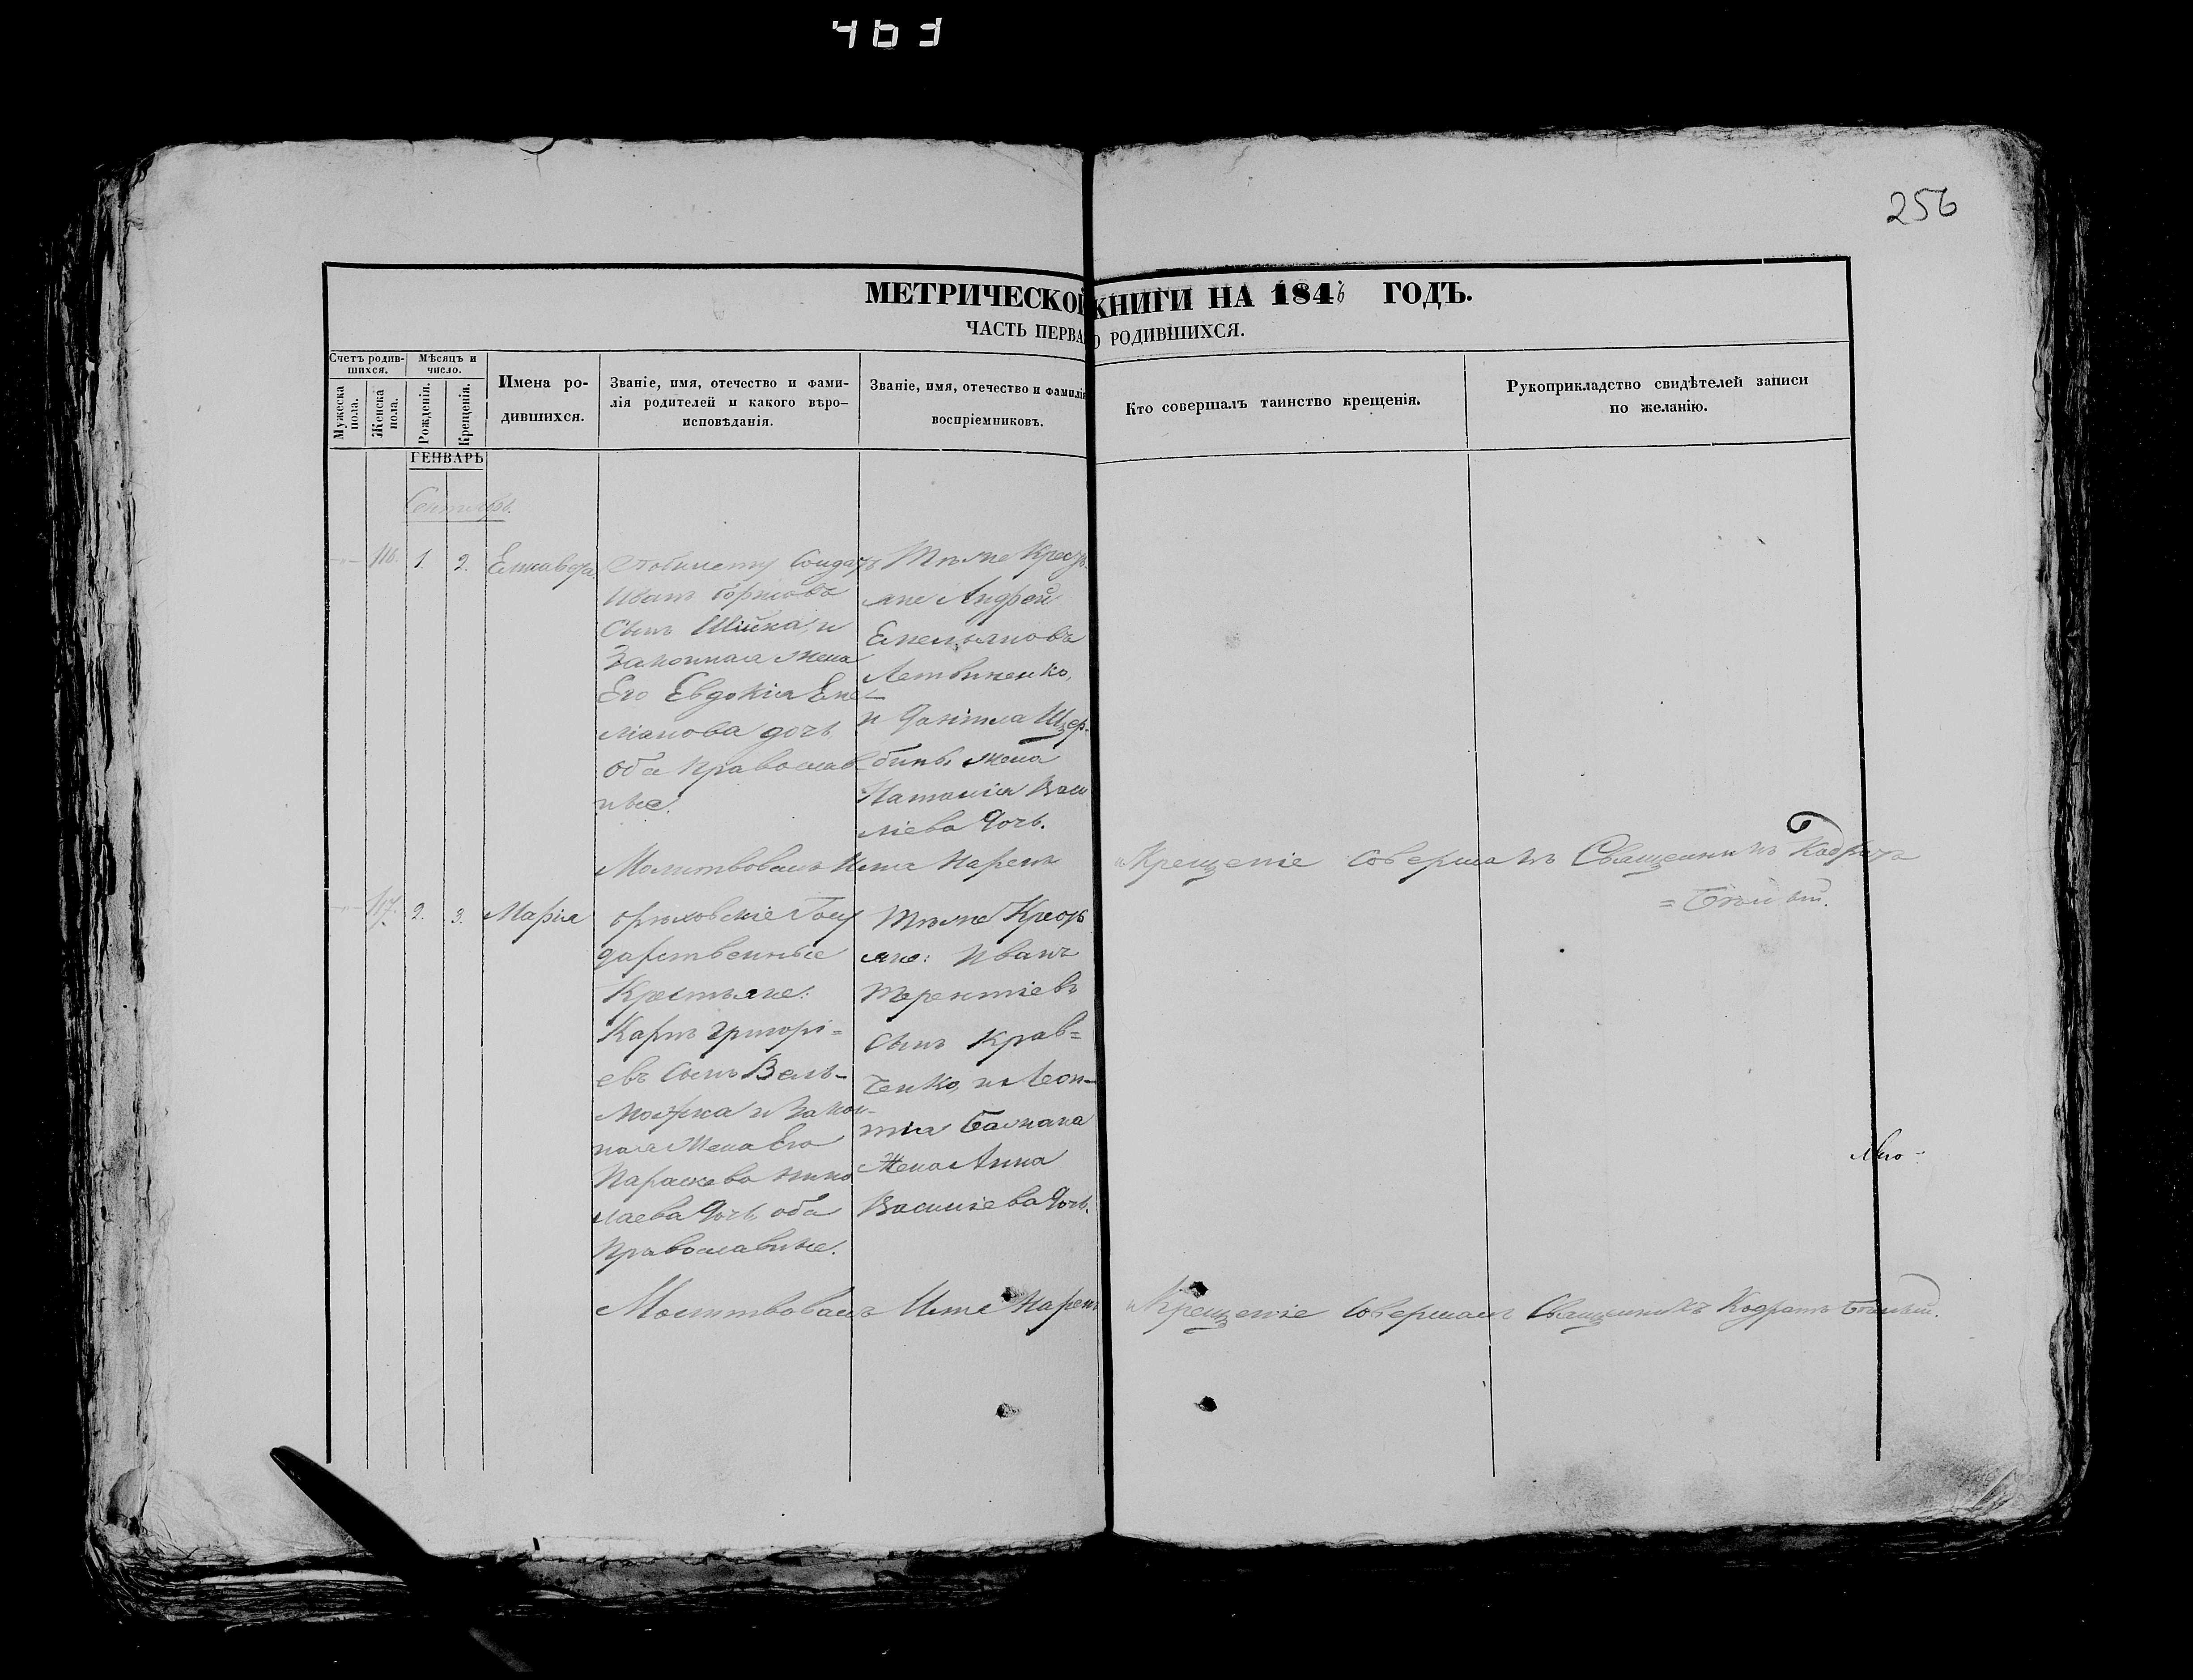 463
256
МЕТРИЧЕСКОЙ КНИГИ НА 1846 ГОДЪ.
ЧАСТЬ ПЕРВА О РОДИВШИХСЯ.
Счетъ родив-
шихся.
Мужеска
пола.
Женска
пола.
Мѣсяцъ и
число.
Рожденія.
Крещенія.
Имена ро-
дившихся.
Званіе, имя, отечество и фами-
лія родителей и какого вѣро-
исповѣданія.
Званіе, имя, отечество и фамилія
воспріемниковъ.
Кто совершалъ таинство крещенія.
Рукоприкладство свидѣтелей записи
по желанію.
ГЕНВАРЬ
Сентябрь.
116. 1. 2. Елисавета.
Побилету Солдатъ
Иванъ Борисовъ
Сынъ Шійка, и
Законная жена
Его Евдокія Еме-
ліанова дочь
оба православ-
ные.
Тѣже Кресть
яне Андрей
Емельяновъ
Летвиненко,
и Даніила Щер-
бины жена
Наталія Васи
ліева Дочь.
Молитвовалъ Имя Нарекъ
и Крещеніе совершалъ Священникъ Кодратъ
= Бѣлый.
117. 2. 3. Марія
Орѣховскіе Госу
дарственные
Крестьяне:
Карпъ Григорі=
евъ Сынъ Вель-
можка и Закон-
ная Жена Его
Параскева Нико
лаева Дочь, оба
Православные.
Тѣже Кресть
яне: Иванъ
Терентіевъ
Сынъ Крав=
ченко, и Леон-
тія
Жена Анна
Василіева Дочь.
Молитвовалъ Имя Нарекъ
и Крещеніе Совершалъ Священникъ Кодратъ Бѣлый.